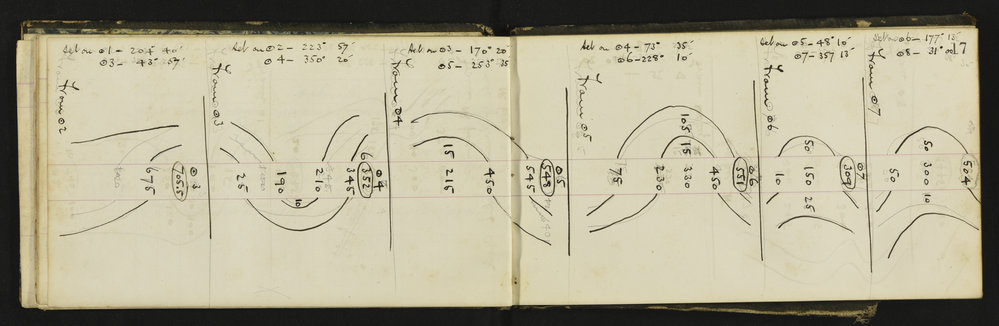 Set on ⊙1 - 204° 40'
⊙3 - 43° 57'
From ⊙2
675
⊙3
705.5
Set on ⊙2 - 223° 57'
⊙4 - 350° 20'
From ⊙3
25
190
10
210
6
345
⊙4
352
Set on ⊙3 - 170° 20'
⊙5 - 253° 35'
From ⊙4
15
1215
450
545
⊙5
548
Set on ⊙4 - 73° 35'
⊙6 - 228° 10'
From ⊙5
175
230
105
15
330
450
⊙6
551
Set on ⊙5 - 48° 10'
⊙7 - 357 13'
From ⊙6
10
50
150
25
⊙7
309
Set on ⊙6 - 177° 13'
⊙8 - 31°
17
From ⊙7
50
50
300
10
504